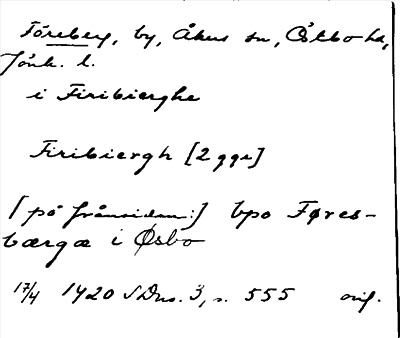 Töreberg, by, Åkers sn, Östbo hd,
Jönk. l.
i Firibierghe
Firibiergh [2 ggr]
[på frånsidan:] bpo Føres-
bærgæ i Øsbo
17/4 1420 SDns. 3, s. 555 orig.